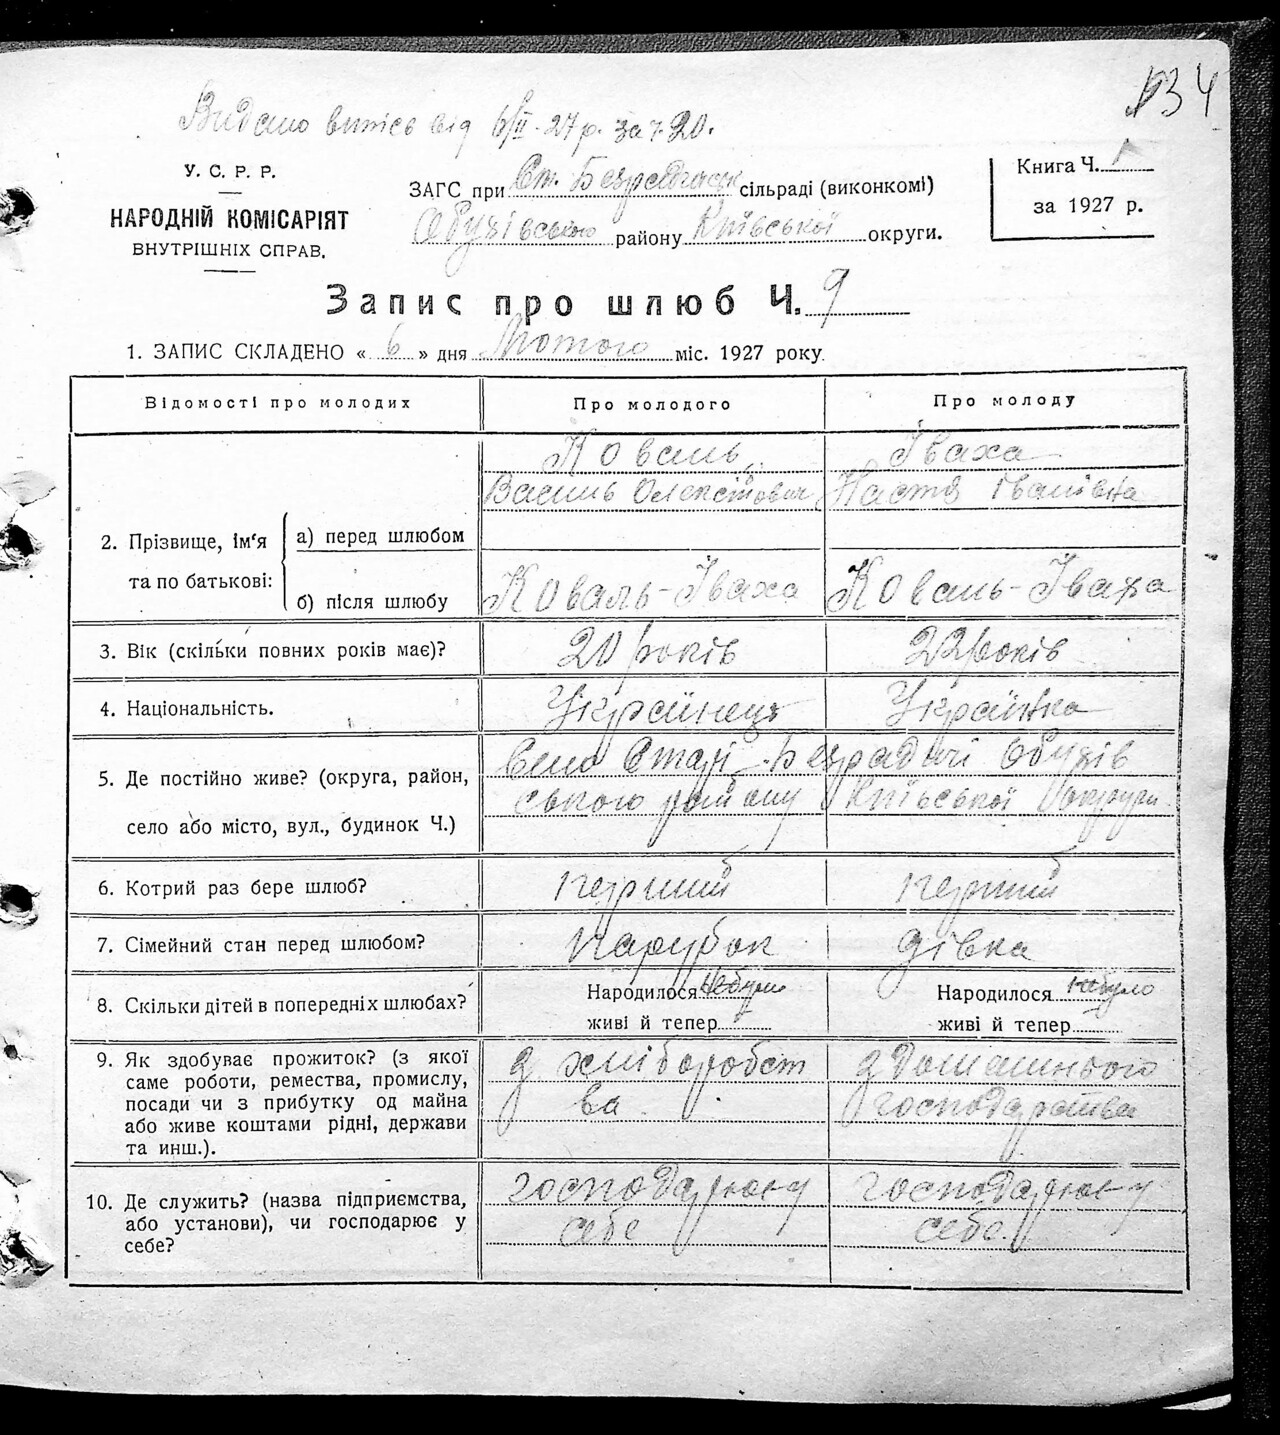 134
Видано витісь від 6/II-27 р. за ч. 20.
У. С. Р. Р.
НАРОДНІЙ КОМІСАРІЯТ
ВНУТРІШНІХ СПРАВ.
ЗАГС при Ст. Безрадичськ сільраді (виконкомі)
Обухівського району Київської округи.
Книга Ч. 1
за 1927 р.
Запис про шлюб Ч. 9
1. ЗАПИС СКЛАДЕНО « 6 » дня Лютого міс. 1927 року.
Відомості про молодих
Про молодого
Про молоду
2. Прізвище, ім'я та по батькові:
а) перед шлюбом
Коваль
Василь Олексійович
Іваха
Настя Іванівна
б) після шлюбу
Коваль-Іваха
Коваль-Іваха
3. Вік (скільки повних років має)?
20 років
22 років
4. Національність.
Українець
Українка
5. Де постійно живе? (округа, район,
село або місто, вул., будинок Ч.)
Село Старі-Безрадичі Обухів
ського району Київської Округи
6. Котрий раз бере шлюб?
перший
перший
7. Сімейний стан перед шлюбом?
парубок
дівка
8. Скільки дітей в попередніх шлюбах?
Народилося небуло
живі й тепер
Народилося небуло
живі й тепер
9. Як здобуває прожиток? (з якої
саме роботи, ремества, промислу,
посади чи з прибутку од майна
або живе коштами рідні, держави
та инш.).
з хліборобст
ва
з домашнього
господарства
10. Де служить? (назва підприємства,
або установи), чи господарює у
себе?
господарює у
себе
господарює у
себе.